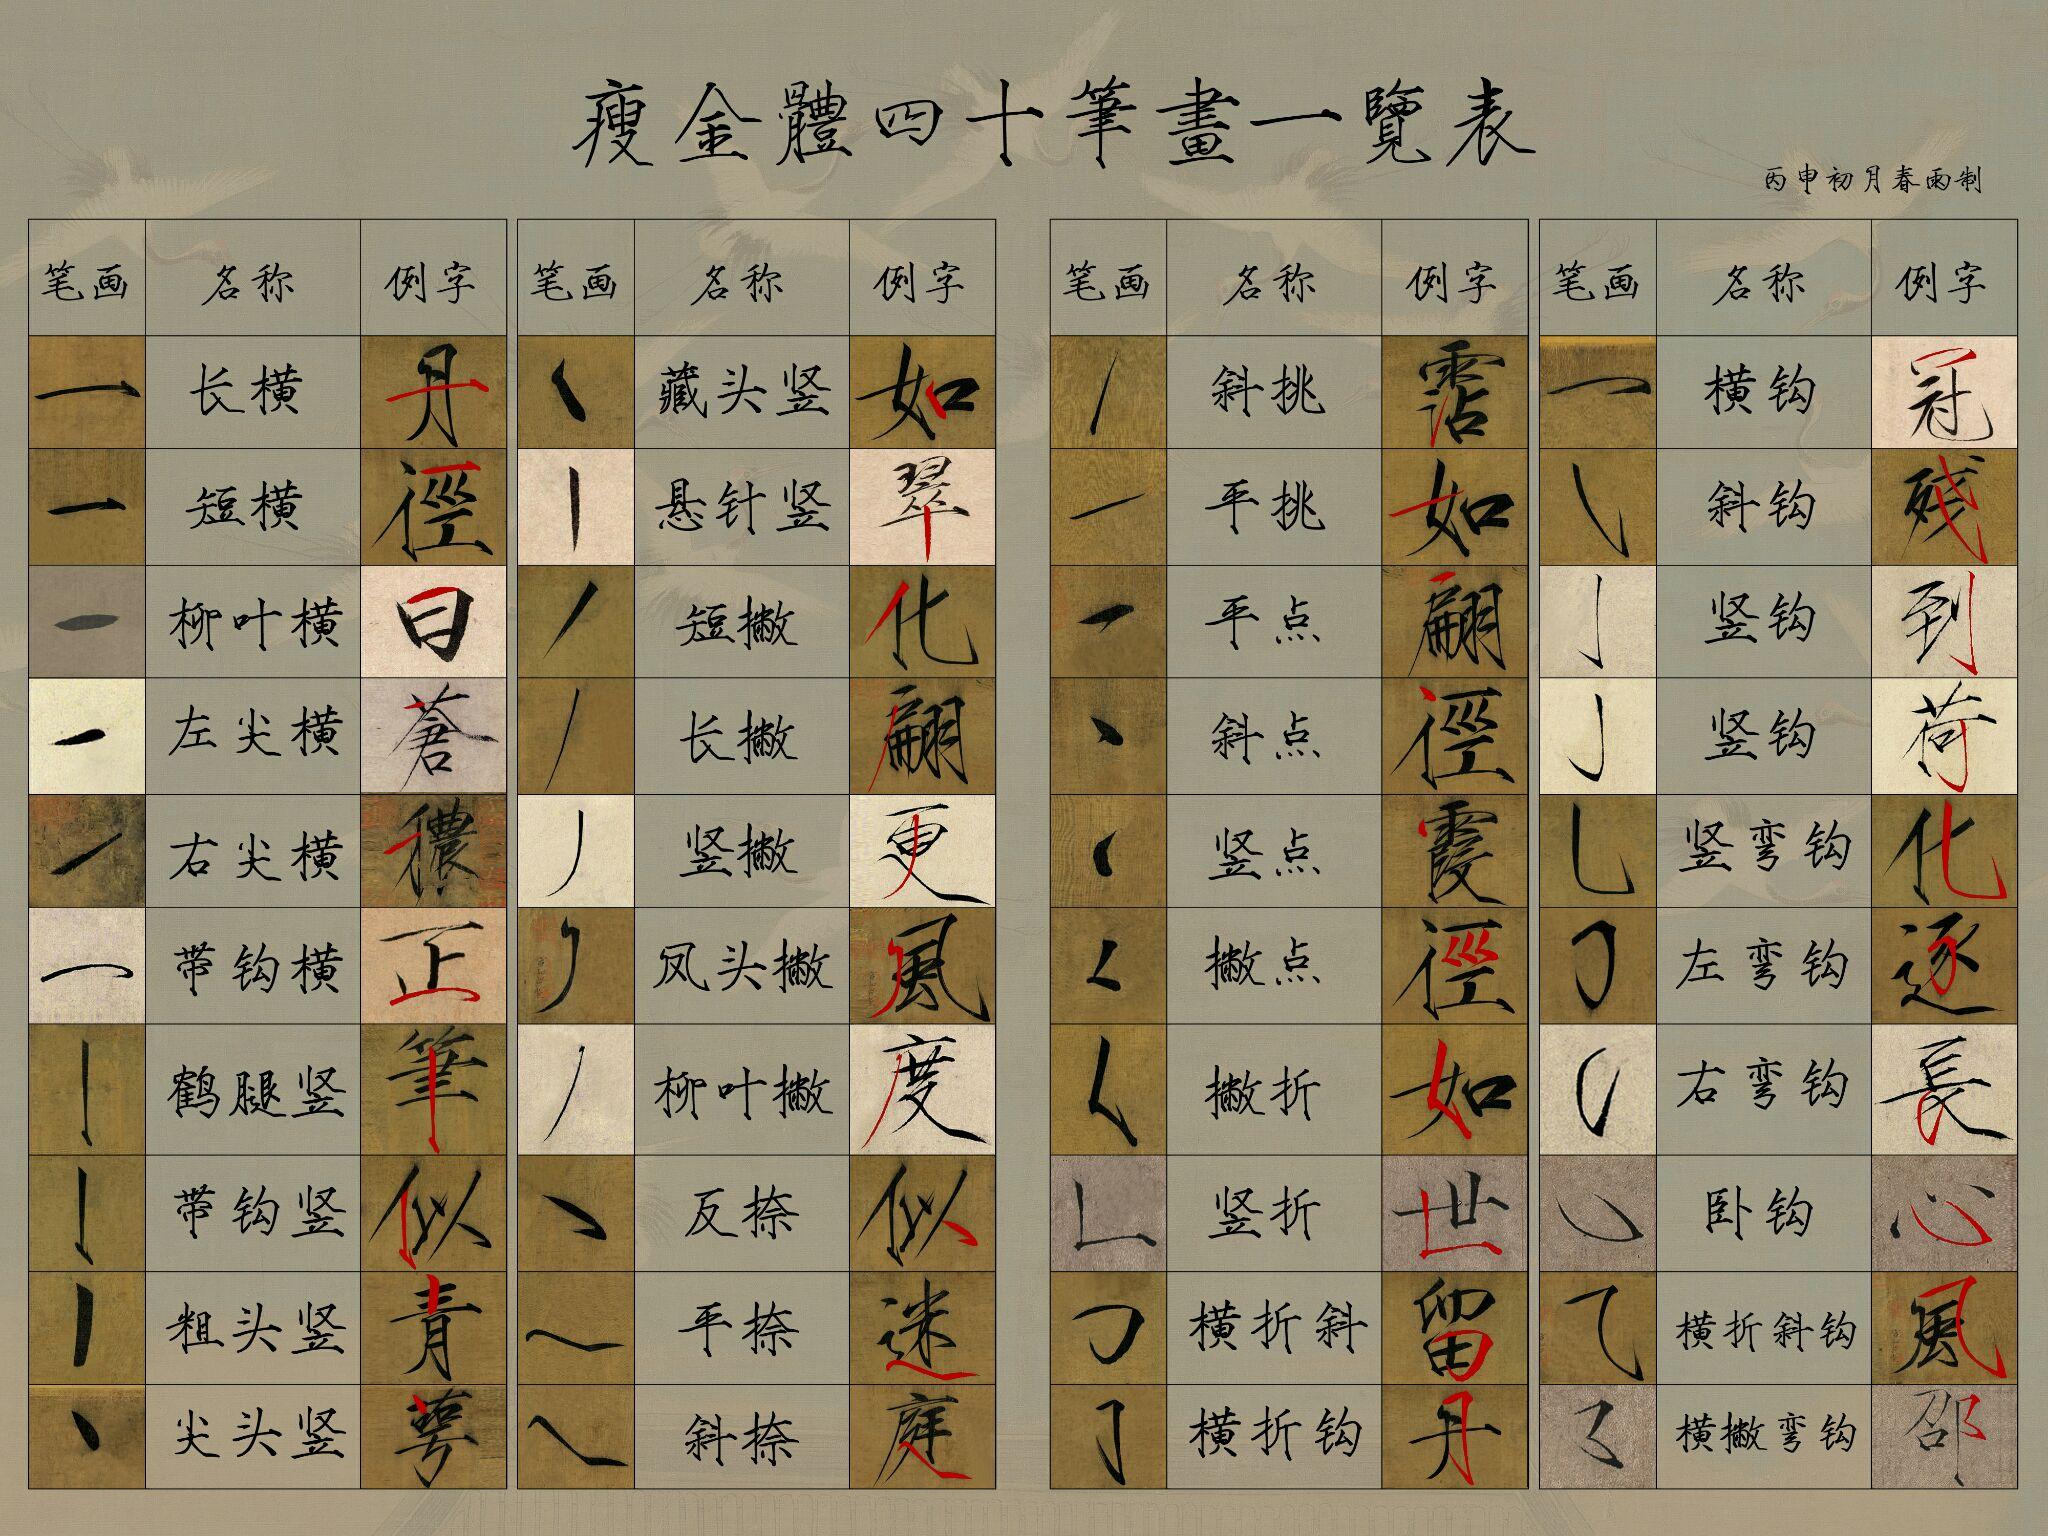 瘦金體四十筆畫一覽表
丙申初月春雨制
笔画 名称 例字 笔画 名称 例字 笔画 名称 例字 笔画 名称 例字
长横 丹 藏头竖 如 斜挑 霑 横钩 冠
短横 徑 悬针竖 翠 平挑 如 斜钩 残
柳叶横 日 短撇 化 平点 翩 竖钩 到
左尖横 蒼 长撇 翩 斜点 徑 竖钩 荷
右尖横 穠 竖撇 更 竖点 霞 竖弯钩 化
带钩横 正 凤头撇 風 撇点 徑 左弯钩 逐
鹤腿竖 筆 柳叶撇 度 撇折 如 右弯钩 長
带钩竖 似 反捺 似 竖折 世 卧钩 心
粗头竖 青 平捺 迷 横折斜 留 横折斜钩 風
尖头竖 萼 斜捺 庭 横折钩 丹 横撇弯钩 邵